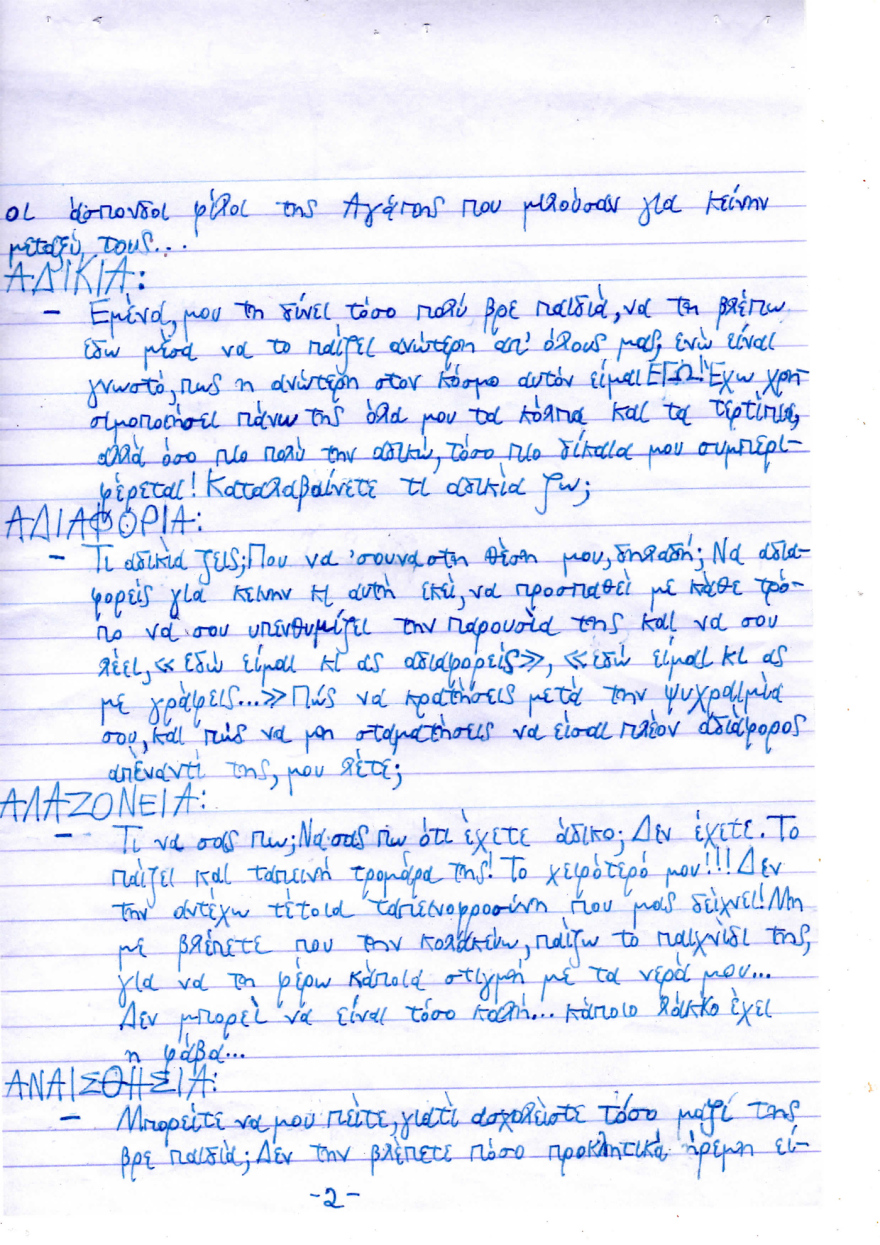 οι άσπονδοι φίλοι της Αγάπης που μιλούσαν για κείνην
μεταξύ τους...
ΑΔΙΚΙΑ:
- Εμένα, μου τη δίνει τόσο πολύ βρε παιδιά, να τη βλέπω
εδώ μέσα να το παίζει ανώτερη απ' όλους μας, ενώ είναι
γνωστό, πως η ανώτερη στον κόσμο αυτόν είμαι ΕΓΩ! Έχω χρη-
σιμοποιήσει πάνω της όλα μου τα κόλπα και τα τερτίπια,
αλλά όσο πιο πολύ την αδικώ, τόσο πιο δίκαια μου συμπερι-
φέρεται! Καταλαβαίνετε τι αδικία ζω;
ΑΔΙΑΦΟΡΙΑ:
- Τι αδικία ζεις; Που να 'σουνα στη θέση μου, δηλαδή; Να αδια-
φορείς για κείνην κι αυτή εκεί, να προσπαθεί με κάθε τρό-
πο να σου υπενθυμίζει την παρουσία της και να σου
λέει, «εδώ είμαι κι ας αδιαφορείς», «εδώ είμαι κι ας
με γράφεις...» Πώς να κρατήσεις μετά την ψυχραιμία
σου, και πώς να μη σταματήσεις να είσαι πλέον αδιάφορος
απέναντί της, μου λέτε;
ΑΛΑΖΟΝΕΙΑ:
- Τι να σας πω; Να σας πω ότι έχετε άδικο; Δεν έχετε. Το
παίζει και ταπεινή τρομάρα της! Το χειρότερό μου!!! Δεν
την αντέχω τέτοια ταπεινοφροσύνη που μας δείχνει! Μη
με βλέπετε που την κολακεύω, παίζω το παιχνίδι της,
για να τη φέρω κάποια στιγμή με τα νερά μου...
Δεν μπορεί να είναι τόσο καλή... κάποιο λάκκο έχει
η φάβα...
ΑΝΑΙΣΘΗΣΙΑ:
- Μπορείτε να μου πείτε, γιατί ασχολείστε τόσο μαζί της
βρε παιδιά; Δεν την βλέπετε πόσο προκλητικά ήρεμη εί-
-2-